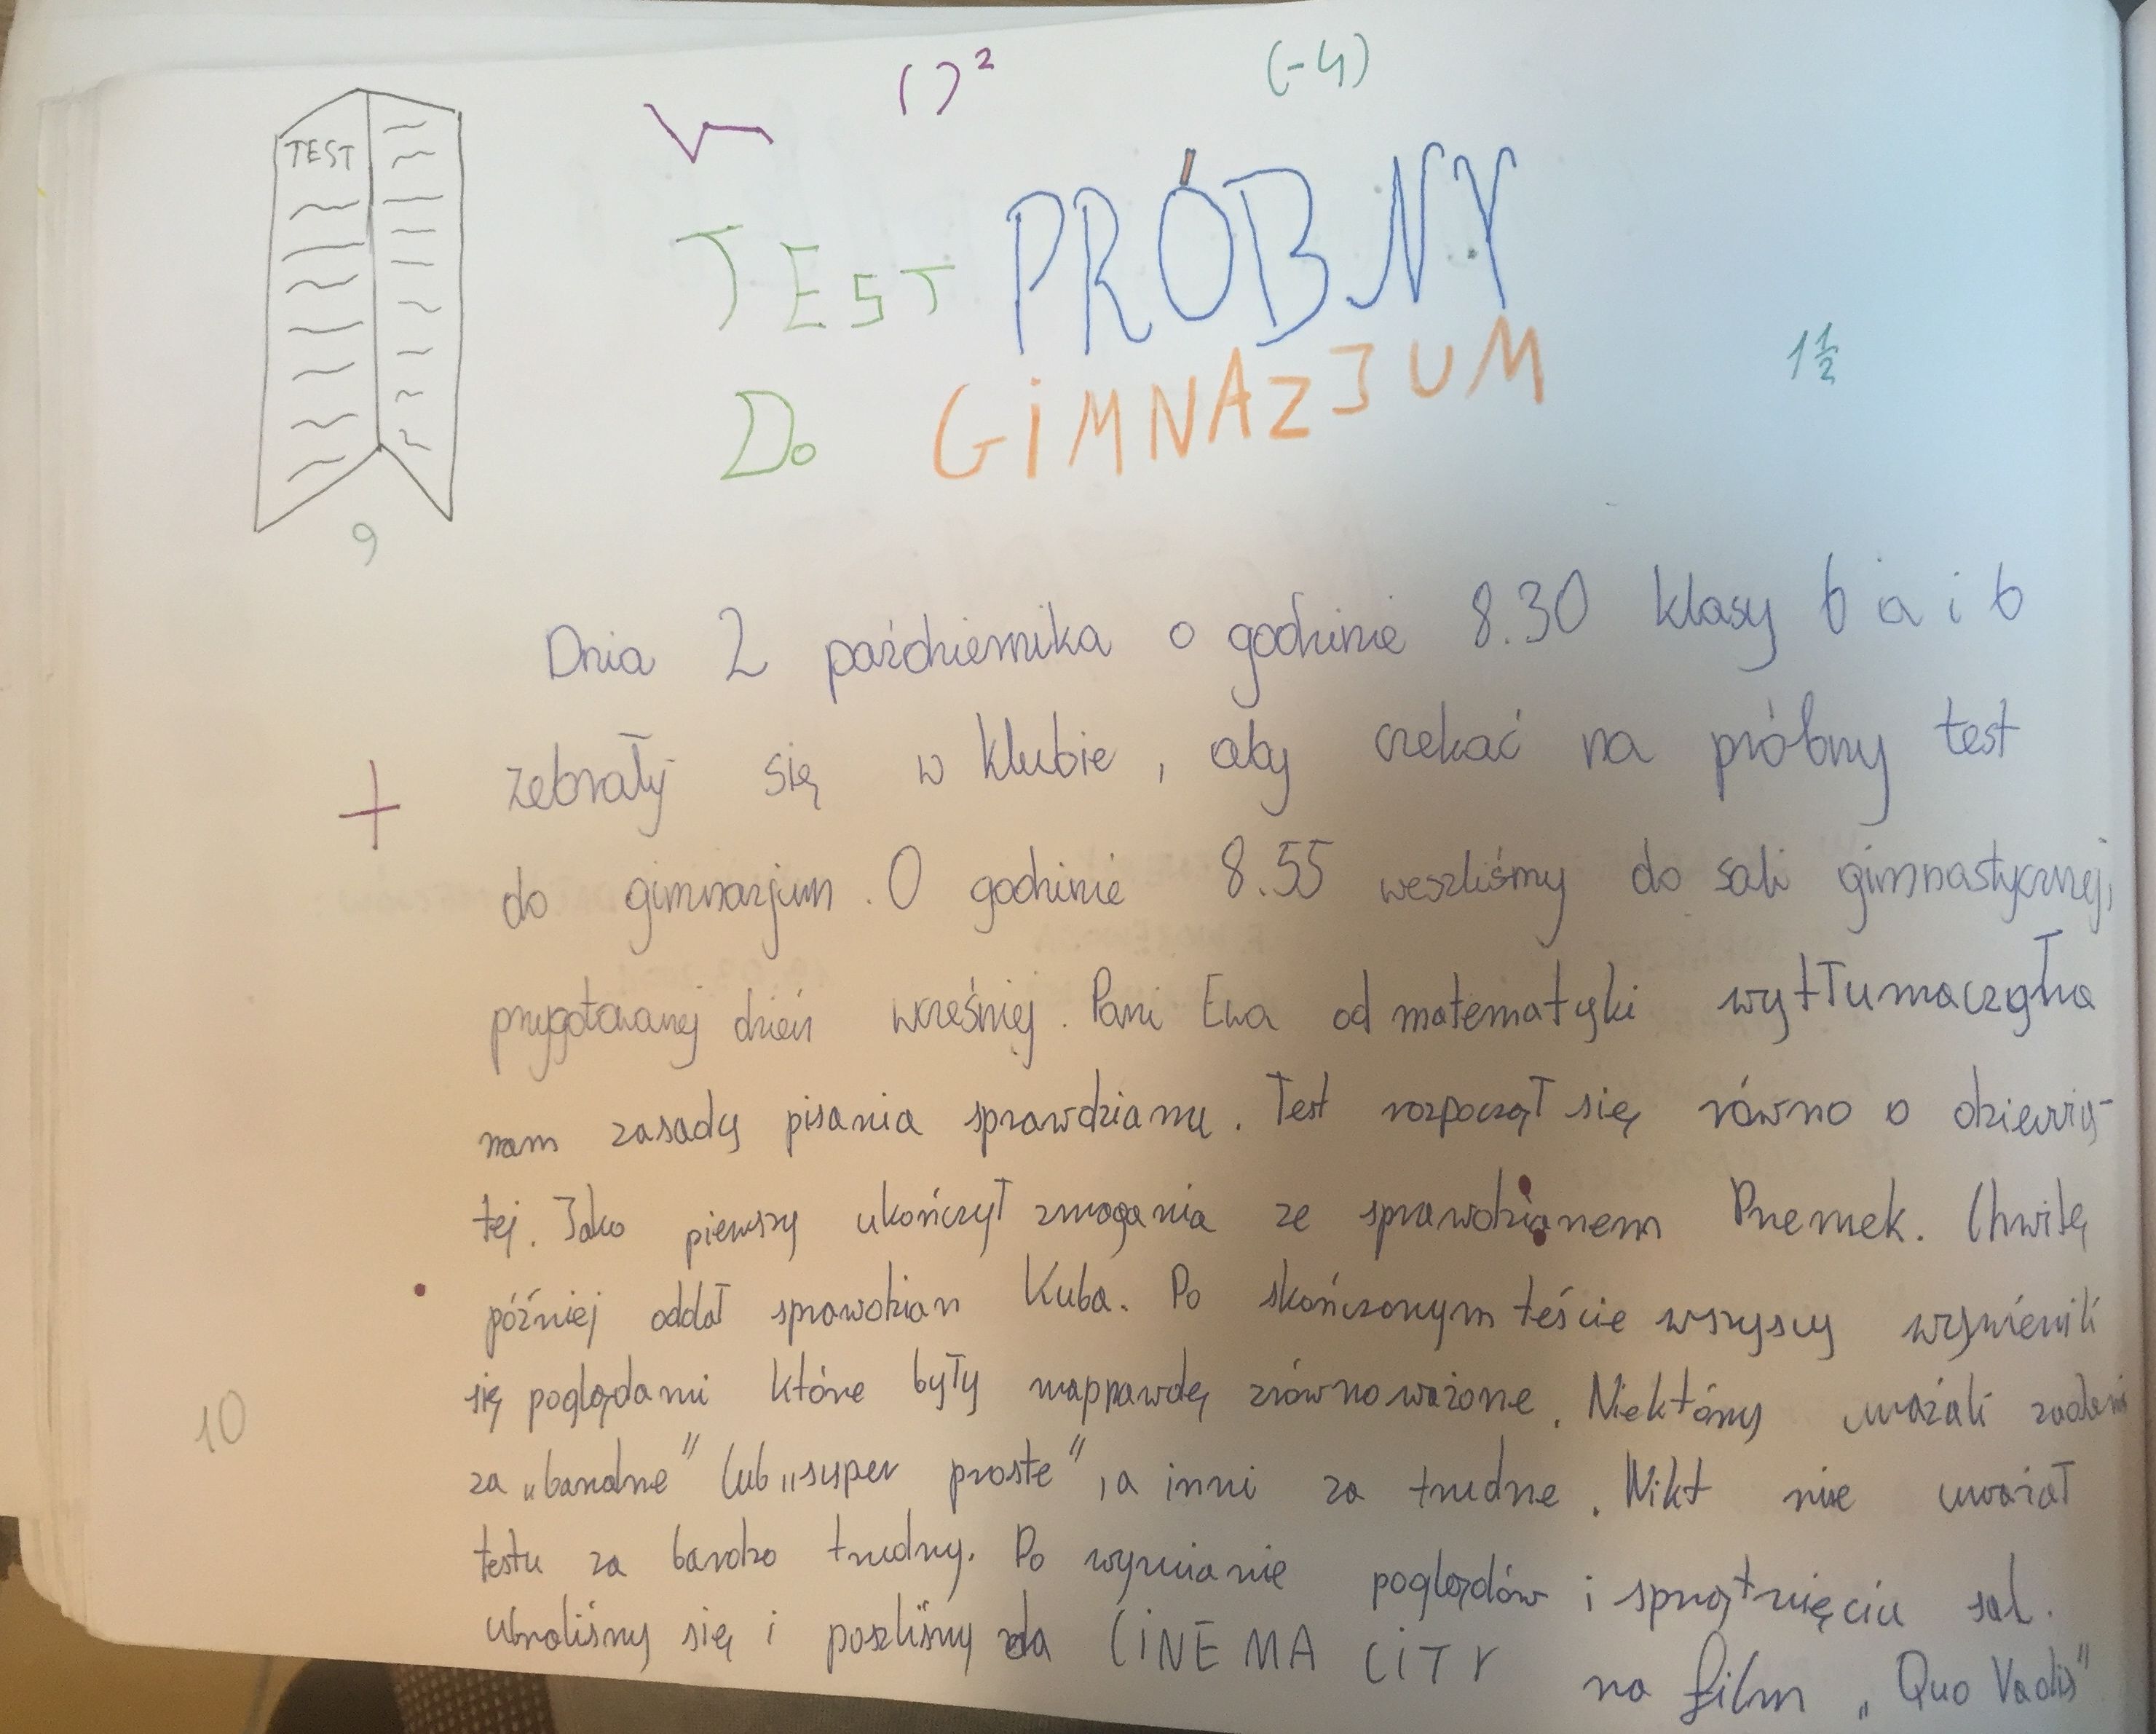 ( )²
(-4)
TEST
TEST PRÓBNY
1 1/2
DO GIMNAZJUM
9
Dnia 2 października o godzinie 8.30 klasy 6 a i b
+ zebrały się w klubie, aby czekać na próbny test
do gimnazjum. O godzinie 8.55 weszliśmy do sali gimnastycznej,
przygotowanej dzień wcześniej. Pani Ewa od matematyki wytłumaczyła
nam zasady pisania sprawdzianu. Test rozpoczął się równo o dziewią-
tej. Jako pierwszy ukończył zmagania ze sprawdzianem Przemek. Chwilę
później oddał sprawdzian Kuba. Po skończonym teście wszyscy wymienili
się poglądami które były naprawdę zrównoważone. Niektórzy uważali zadania
10
za „banalne" lub „super proste", a inni za trudne. Nikt nie uważał
testu za bardzo trudny. Po wymianie poglądów i sprzątnięciu sal.
ubraliśmy się i poszliśmy do CINEMA CITY na film „Quo Vadis"